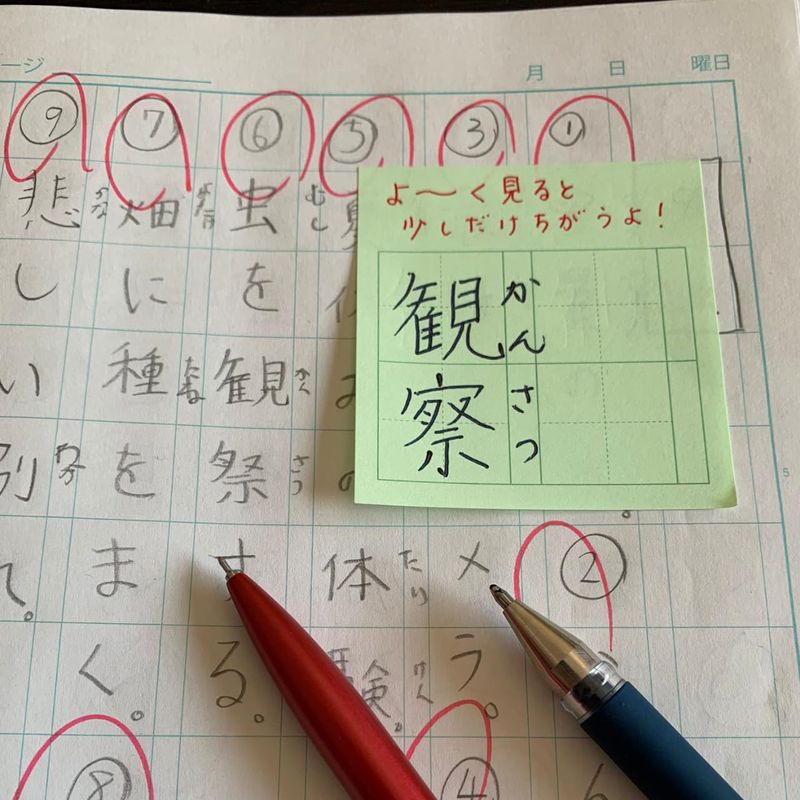 ージ
月 日 曜日
よ〜く見ると
少しだけちがうよ!
観察
かんさつ
①
②
③
メラ。
④
⑤
体験。
⑥
虫を観祭する。
むし
さつ
⑦
畑に種をまく。
たね
⑧
⑨
悲しい別
かな